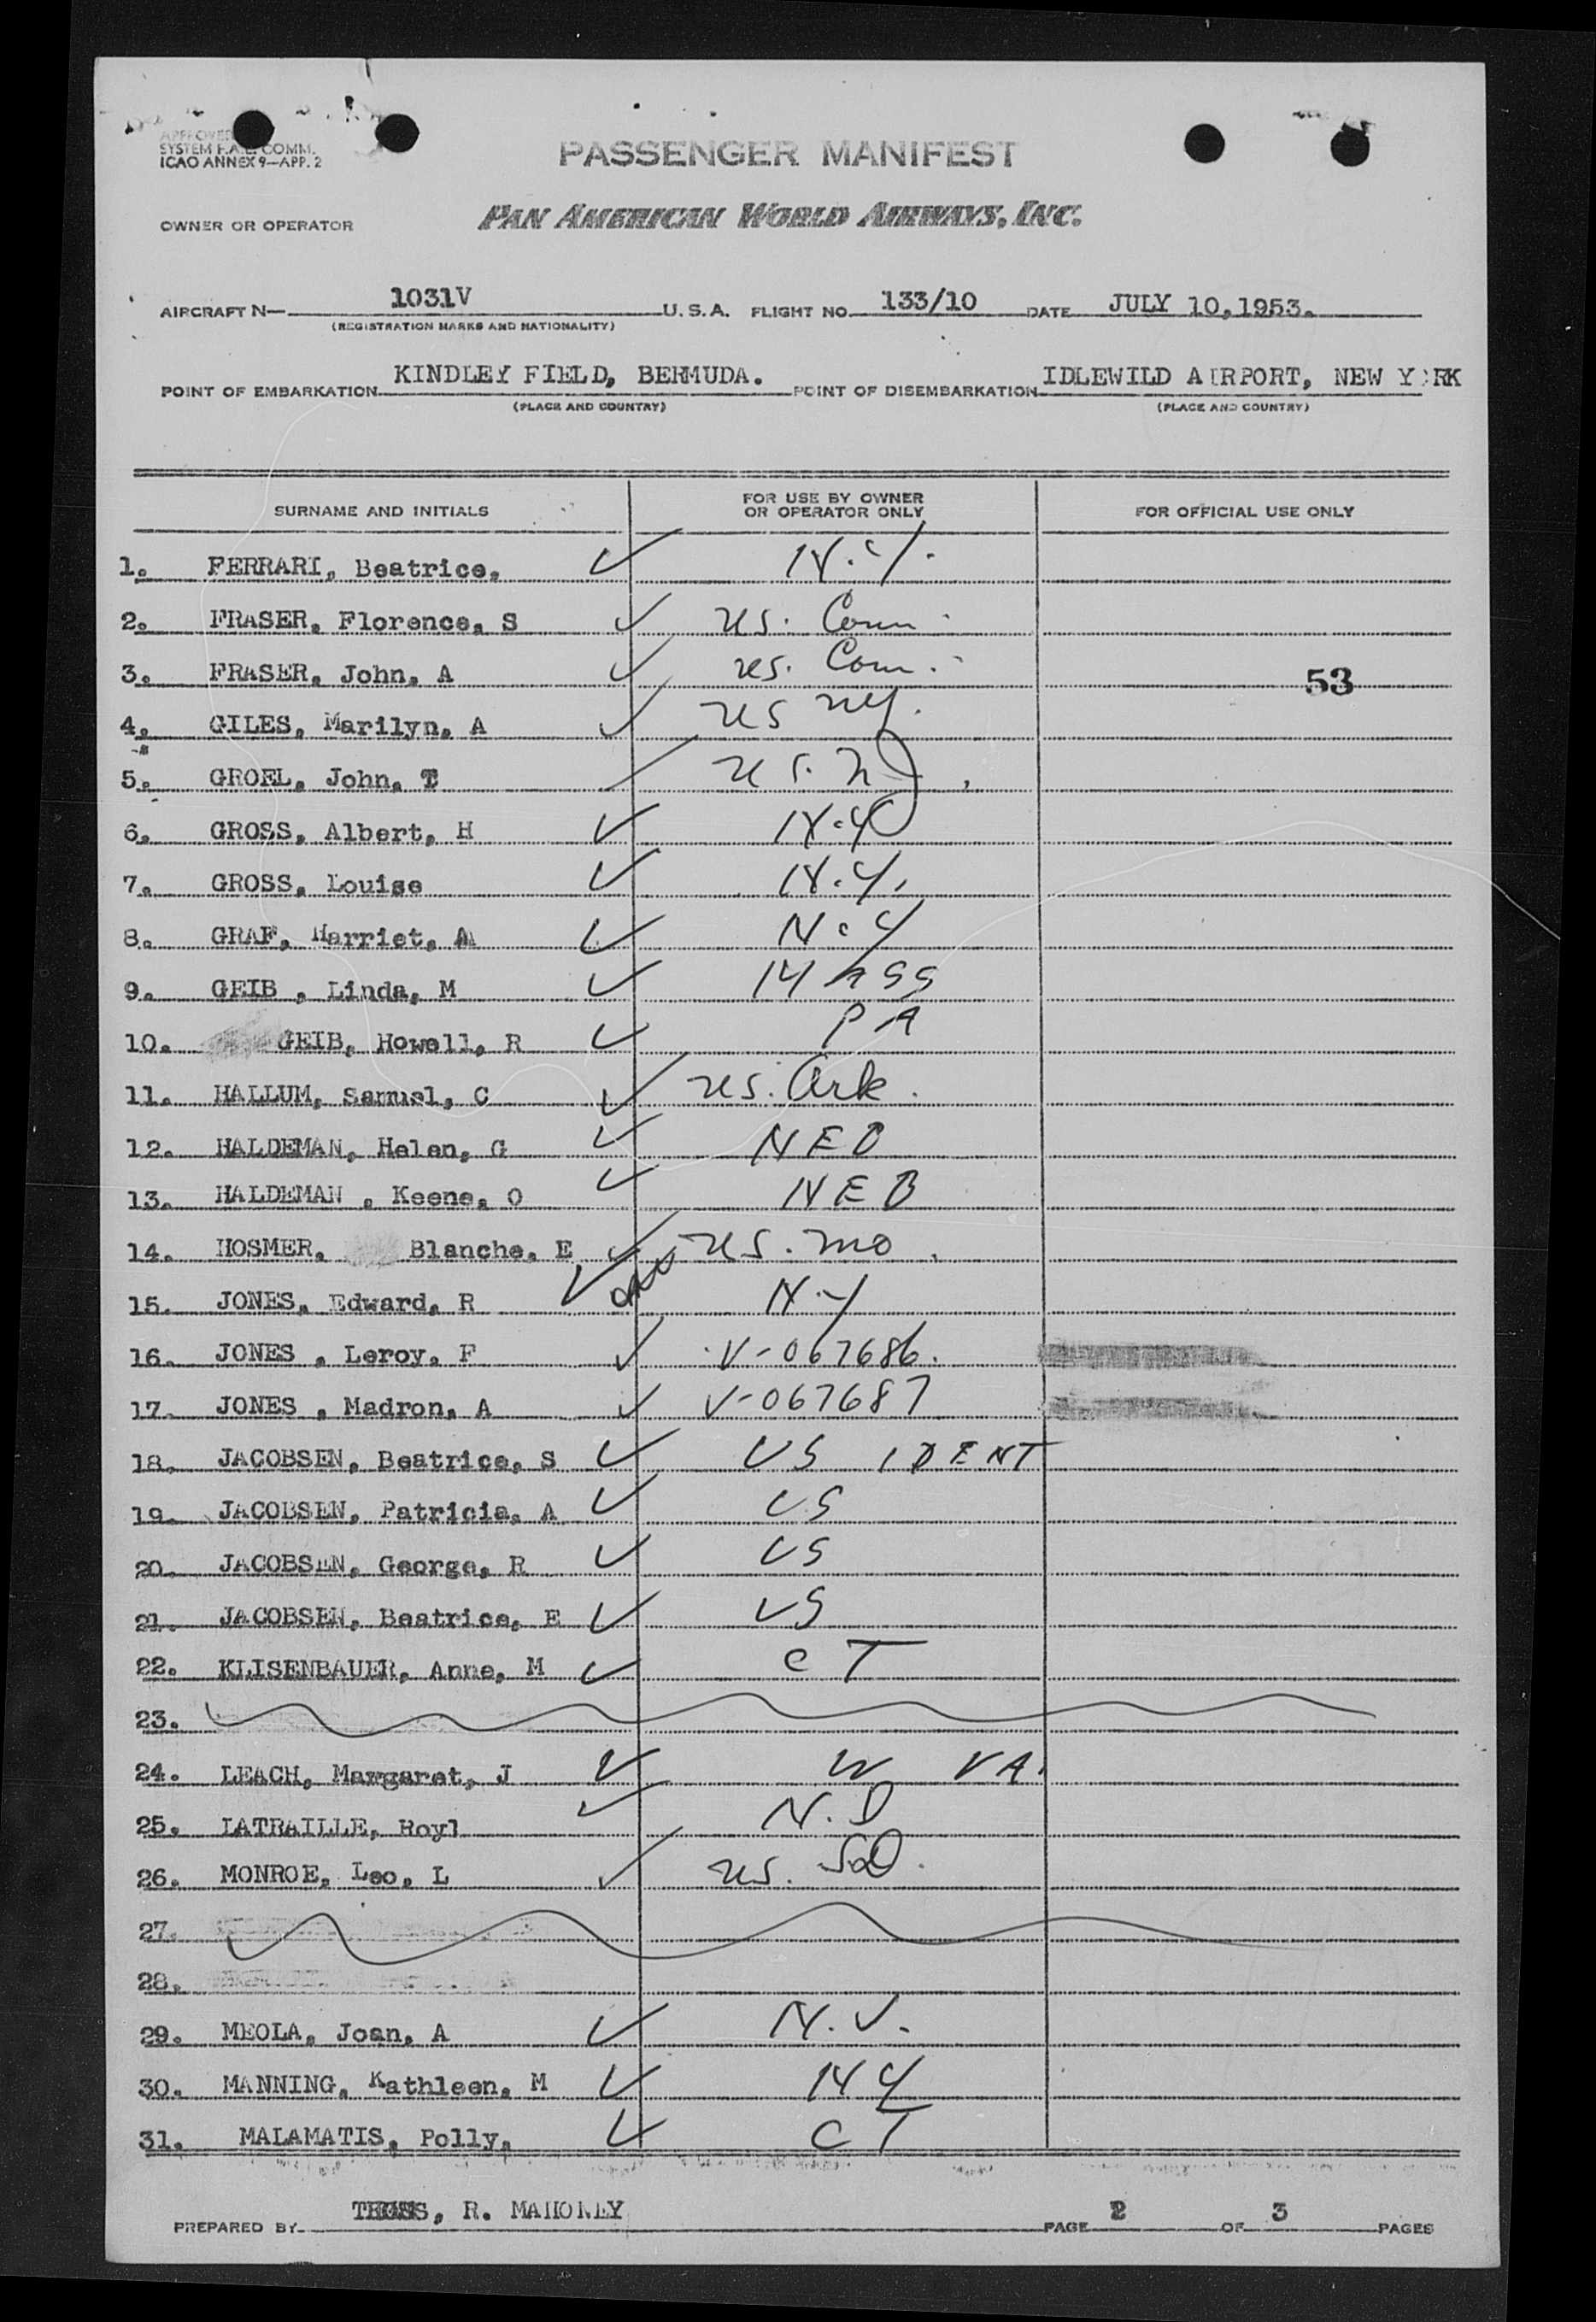 APPROVED
SYSTEM F.A.L. COMM.
ICAO ANNEX 9—APP. 2
PASSENGER MANIFEST
OWNER OR OPERATOR PAN AMERICAN WORLD AIRWAYS, INC.
AIRCRAFT N— 1031V U.S.A. FLIGHT NO. 133/10 DATE JULY 10,1953.
(REGISTRATION MARKS AND NATIONALITY)
POINT OF EMBARKATION KINDLEY FIELD, BERMUDA. POINT OF DISEMBARKATION IDLEWILD AIRPORT, NEW YORK
(PLACE AND COUNTRY) (PLACE AND COUNTRY)
SURNAME AND INITIALS FOR USE BY OWNER OR OPERATOR ONLY FOR OFFICIAL USE ONLY
1. FERRARI, Beatrice. ✓ N.Y.
2. FRASER, Florence, S ✓ res. Conn.
3. FRASER, John, A ✓ res. Conn. 53
4. GILES, Marilyn, A ✓ res NY.
5. GROEL, John, T res. NJ.
6. GROSS, Albert, H ✓ N.Y
7. GROSS, Louise ✓ N.Y.
8. GRAF, Harriet, M ✓ N.Y
9. GEIB , Linda, M ✓ MASS
10. GEIB, Howell, R ✓ PA
11. HALLUM, Samuel, C ✓ res. Ark.
12. HALDEMAN, Helen, G ✓ NEB
13. HALDEMAN , Keene, O ✓ NEB
14. HOSMER, Blanche, E ✓ res. Mo.
15. JONES, Edward, R ✓ N.Y
16. JONES , Leroy, F ✓ V-067686.
17. JONES , Madron, A ✓ V-067687
18. JACOBSEN, Beatrice, S ✓ US IDENT
19. JACOBSEN, Patricia, A ✓ US
20. JACOBSEN, George, R ✓ US
21. JACOBSEN, Beatrice, E ✓ US
22. KLISENBAUER, Anne, M ✓ CT
23.
24. LEACH, Margaret, J ✓ W VA.
25. LATRAILLE, Royl ✓ N.D
26. MONROE, Leo, L ✓ res. SD.
27.
28.
29. MEOLA, Joan, A ✓ N.J.
30. MANNING, Kathleen, M ✓ NY
31. MALAMATIS, Polly, ✓ CT
PREPARED BY R. MAHONEY PAGE 2 OF 3 PAGES